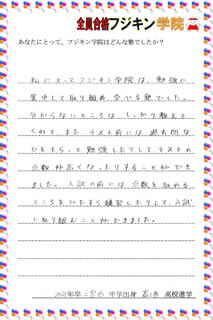 全員合格フジキン学院
あなたにとって、フジキン学院はどんな塾でしたか?
私にとってフジキン学院は、勉強に
集中して取り組め、学べる塾でした。
分からないところは、しっかり教えて
くれて、また、テスト前には、過去問な
どをもらって勉強したりして、テストの
点数が高くなったりすることができ
ました。入試の前には、点数を取れる
ところをひたすら練習したりして、入試
に取り組むことができました。
2021年卒 二宮西 中学出身 高校進学